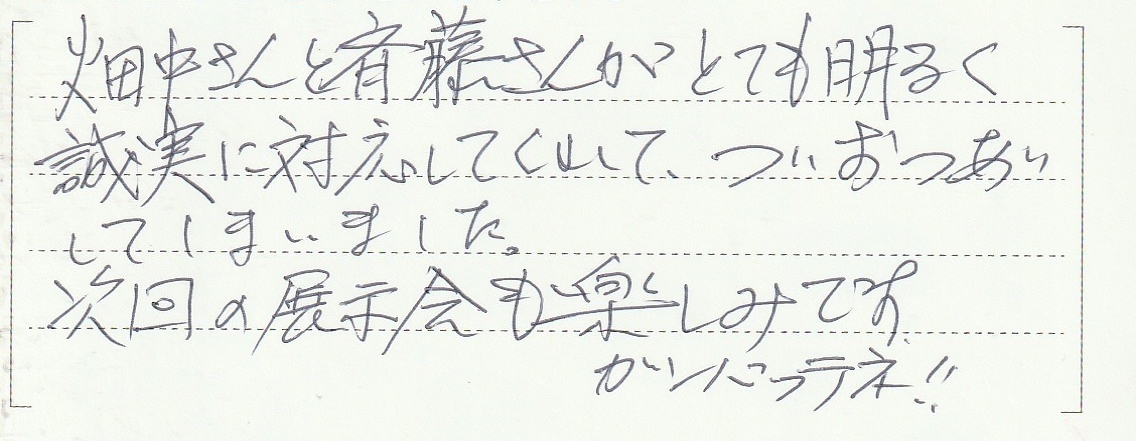 畑中さんと斉藤さんがとても明るく
誠実に対応してくれて、ついおつきあい
してしまいました。
次回の展示会も楽しみです。
ガンバッテネ!!